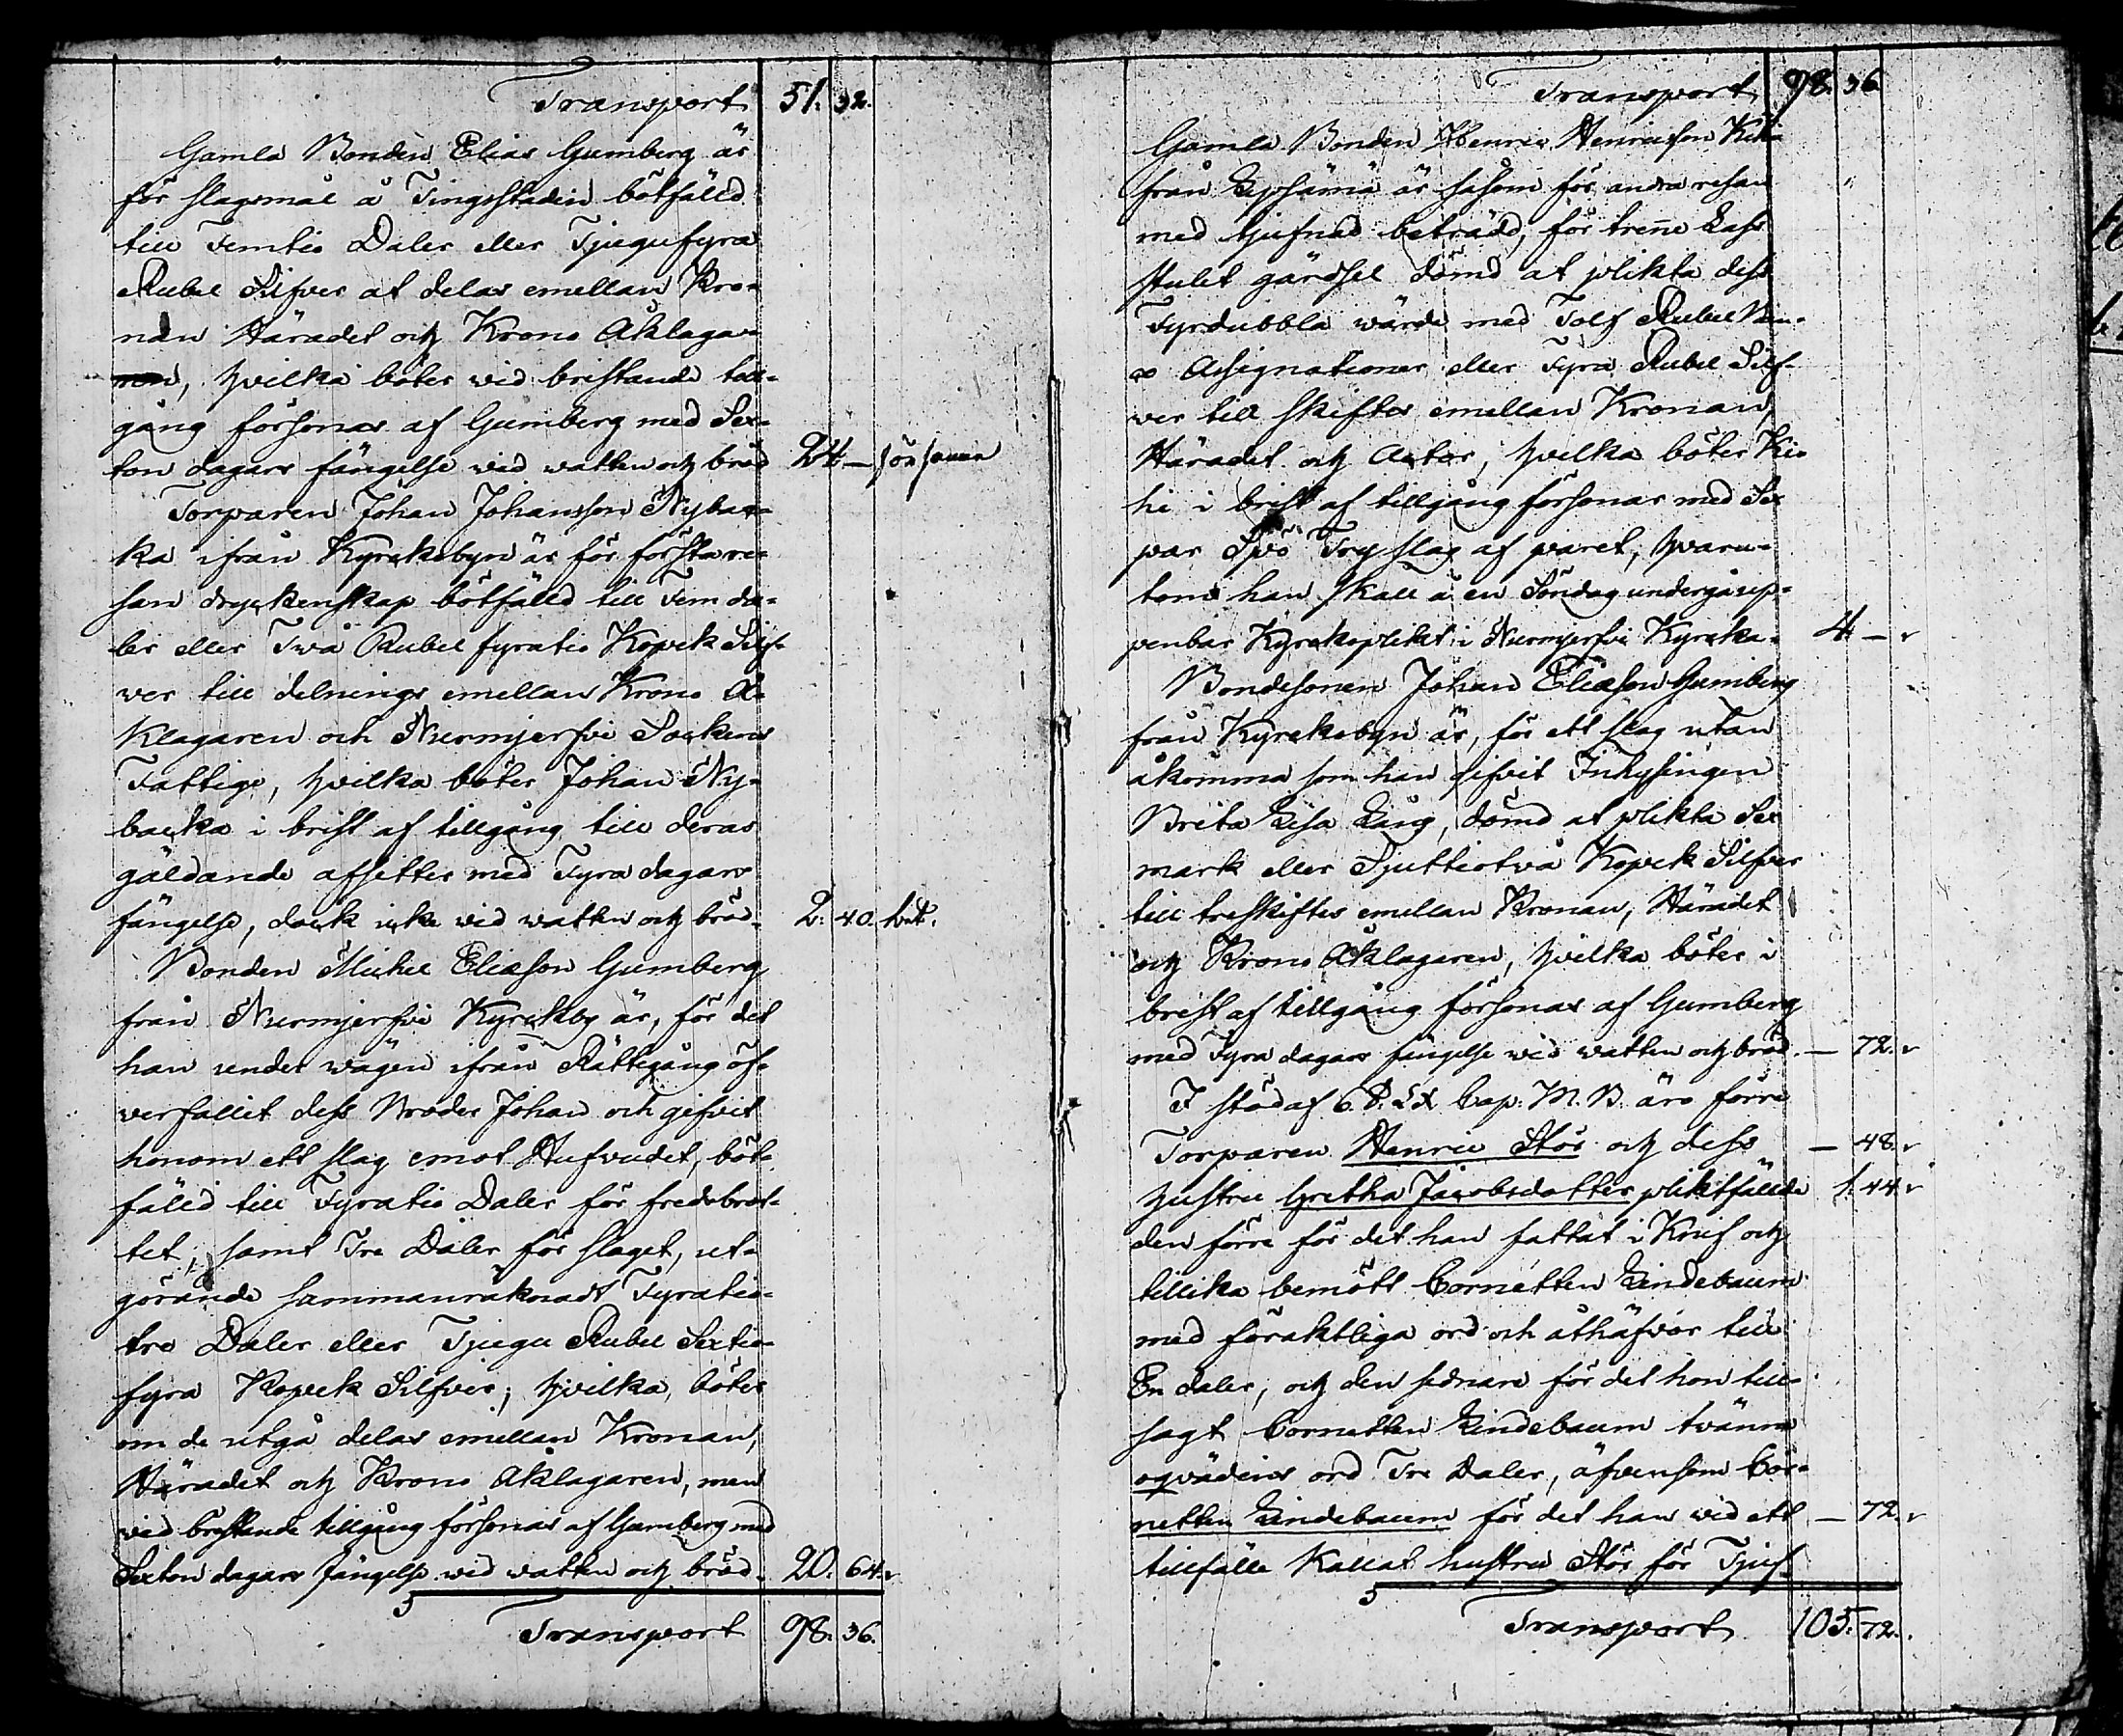 Transport 51. 32.
Gamla Bonden Elias Gumberg är
för slagsmål å Tingsstaden bötfälld
till Femtio Daler eller Tjugufyra
Rubel Silfver at delas emellan Kro-
nan Häradet och Krono Åklaga-
ren, hvilka böter vid bristande till-
gång försonas af Gumberg med Sex-
ton dagars fängelse vid watten och bröd 24 —
Torparen Johan Johansson Nybac-
ka ifrån Kyrckobyn är för första re-
san dryckenskap bötfälld till Fem da-
ler eller Två Rubel fyratio Kopek Silf-
ver till delnings emellan Krono Å-
klagaren och Nurmjerfvi Sockens
Fattige, hvilka böter Johan Ny-
backa i brist af tillgång till deras
gäldande afsitter med Fyra dagars
fängelse, dock icke vid watten och bröd. 2. 40.
Bonden Michel Eliæson Gumberg
från Nurmjerfvi Kyrckby är, för det
han under wägen ifrån Rättegång öf-
verfallit dess Broder Johan och gifvit
honom ett slag emot Hufvudet, böt-
fälld till Fyratio Daler för fredsbrot-
tet, samt Tre Daler för slaget, ut-
görande sammanräknadt Fyratio-
tre Daler eller Tjugu Rubel Sextio-
fyra Kopek Silfver; hvilka, böter
om de utgå delas emellan Kronan,
Häradet och Krono Åklagaren, men
vid bristande tillgång försonas af Gumberg med
Sexton dagars fängelse vid watten och bröd. 20. 64.
Transport 98. 36.
Transport 98. 36
Gamla Bonden Henric Henricsson
från är såsom för andra resan
med tjufnad beträdd, för trenne Lass
stulet gärdsel dömd at plikta dess
Fyrdubbla wärde med Tolf Rubel Ban-
co Assignationer eller Fyra Rubel Silf-
ver till skiftes emellan Kronan,
Häradet och Actor, hvilka böter
hi i brist af tillgång försonar med Sex
par Spö Trej slag af paret, hvaru-
tom han skall å en Söndag undergå up-
penbar Kyrckoplikt i Nurmjerfvi Kyrcka. 4. —
Bondesonen Johan Eliæson Gumberg
från Kyrckobyn är, för ett slag utan
åkomma som han gifvit Inhysingen
Brita Lisa Lång, dömd at plikta Sex
mark eller Sjuttiotvå Kopek Silfver
till treskiftes emellan Kronan, Häradet
och Krono Åklagaren, hvilka böter i
brist af tillgång försonas af Gumberg
med Fyra dagars fängelse vid watten och bröd. — 72.
I stöd af 6 §. LX Cap: M. B. äro förre
Torparen Henric Stör och dess — 48.
hustru Gretha Jacobsdotter pliktfällde 1. 44.
den förre för det han fattat i Knif och
tillika bemött Cornetten Lindebaum
med föraktliga ord och åthäfvor till
En daler, och den sednare för det hon till-
sagt Cornetten Lindebaum tvänne
oqvädins ord Tre Daler, äfvensom Cor-
netten Lindebaum för det han vid ett — 72.
tillfälle Kallat hustru Stör för Tjuf
Transport 105. 72.